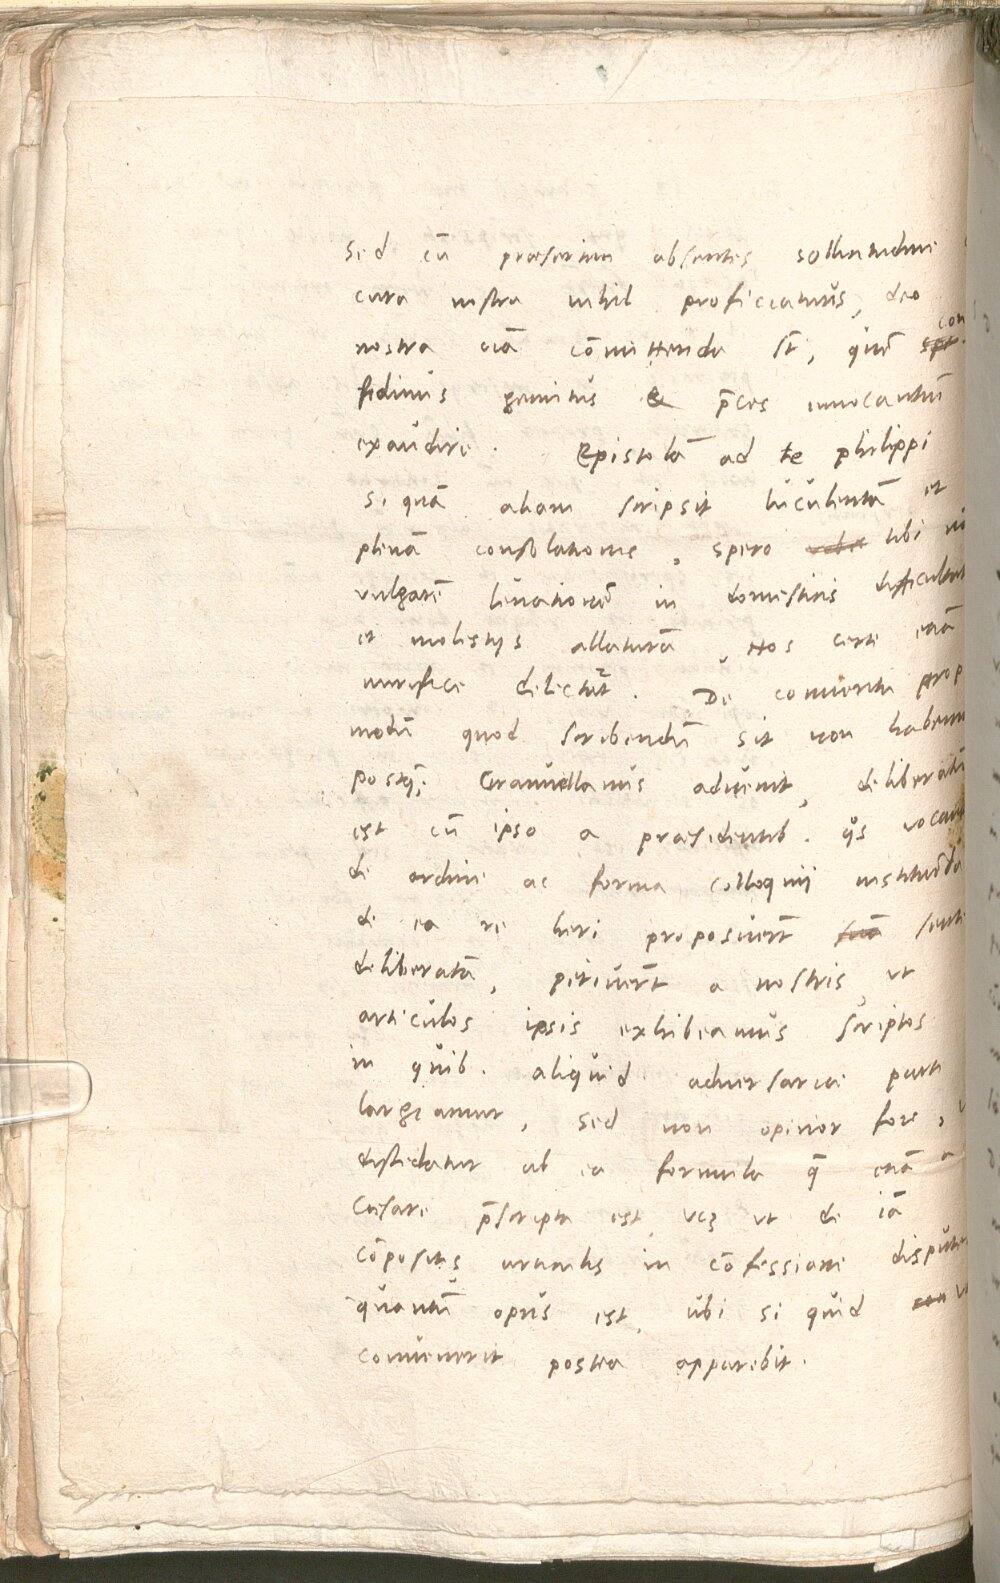 Sed cū præsertim absentes sollicitudine
cura nostra nihil proficiamus, deo
nostra oīa cōmittenda st̄, quē con
fidimus gemitus & p̄ces invocantiū
exaudire. Epistolā ad te philippi
si quā aliam scripsit luculentā et
plenā consolationis, spero tibi nō
vulgarē levationē in domesticis difficultat
et molestijs allaturā, Nos certe etiā
mirifice delectavit. De conventu prop
modū quod scribendū sit non habemus
postq̄; Granvellanus advenit, deliberatū
est cū ipso a præsidentib. q̊s vocant
de ordine ac forma colloquii instituēdi
de ea re heri proposuerūt suā sente
deliberatā, petiverūt a nostris, ut
articulos ipsis exhibeamus scriptos
in quib. aliquid adversariæ parti
largiamur, sed non opinor fore,
discedatur ab ea formula q̄ etiā a
Cæsare p̄scripta est, vcꝫ ut de iā
cōpositis articulis in cōfessione disputet
quantū opus est, ubi si quid
convenerit postea apparebit.